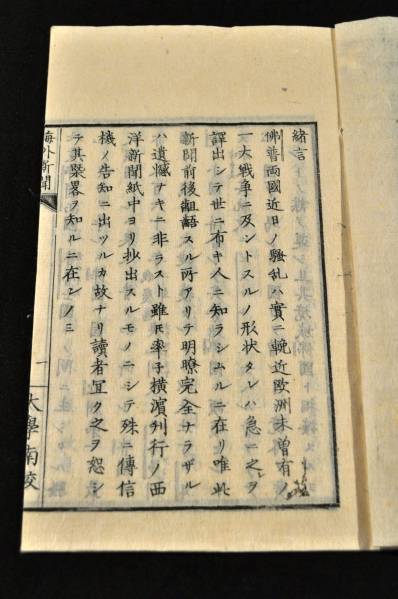 緒言
佛普両國近日ノ騒乱ハ實ニ輓近欧洲未曽有ノ
一大戦争ニ及ントスルノ形状タレハ急ニ之ヲ
譯出シテ世ニ布キ人ニ知ラシムルニ在リ唯此
新聞前後齟齬スル所アリテ明瞭完全ナラザル
ハ遺憾ナキニ非ラスト雖モ率子横濱刋行ノ西
洋新聞紙中ヨリ抄出スルモノニシテ殊ニ傳信
機ノ告知ニ出ツルカ故ナリ讀者宜ク之ヲ恕シ
テ其槩畧ヲ知ルニ在ンノミ
海外新聞
一
大學南校